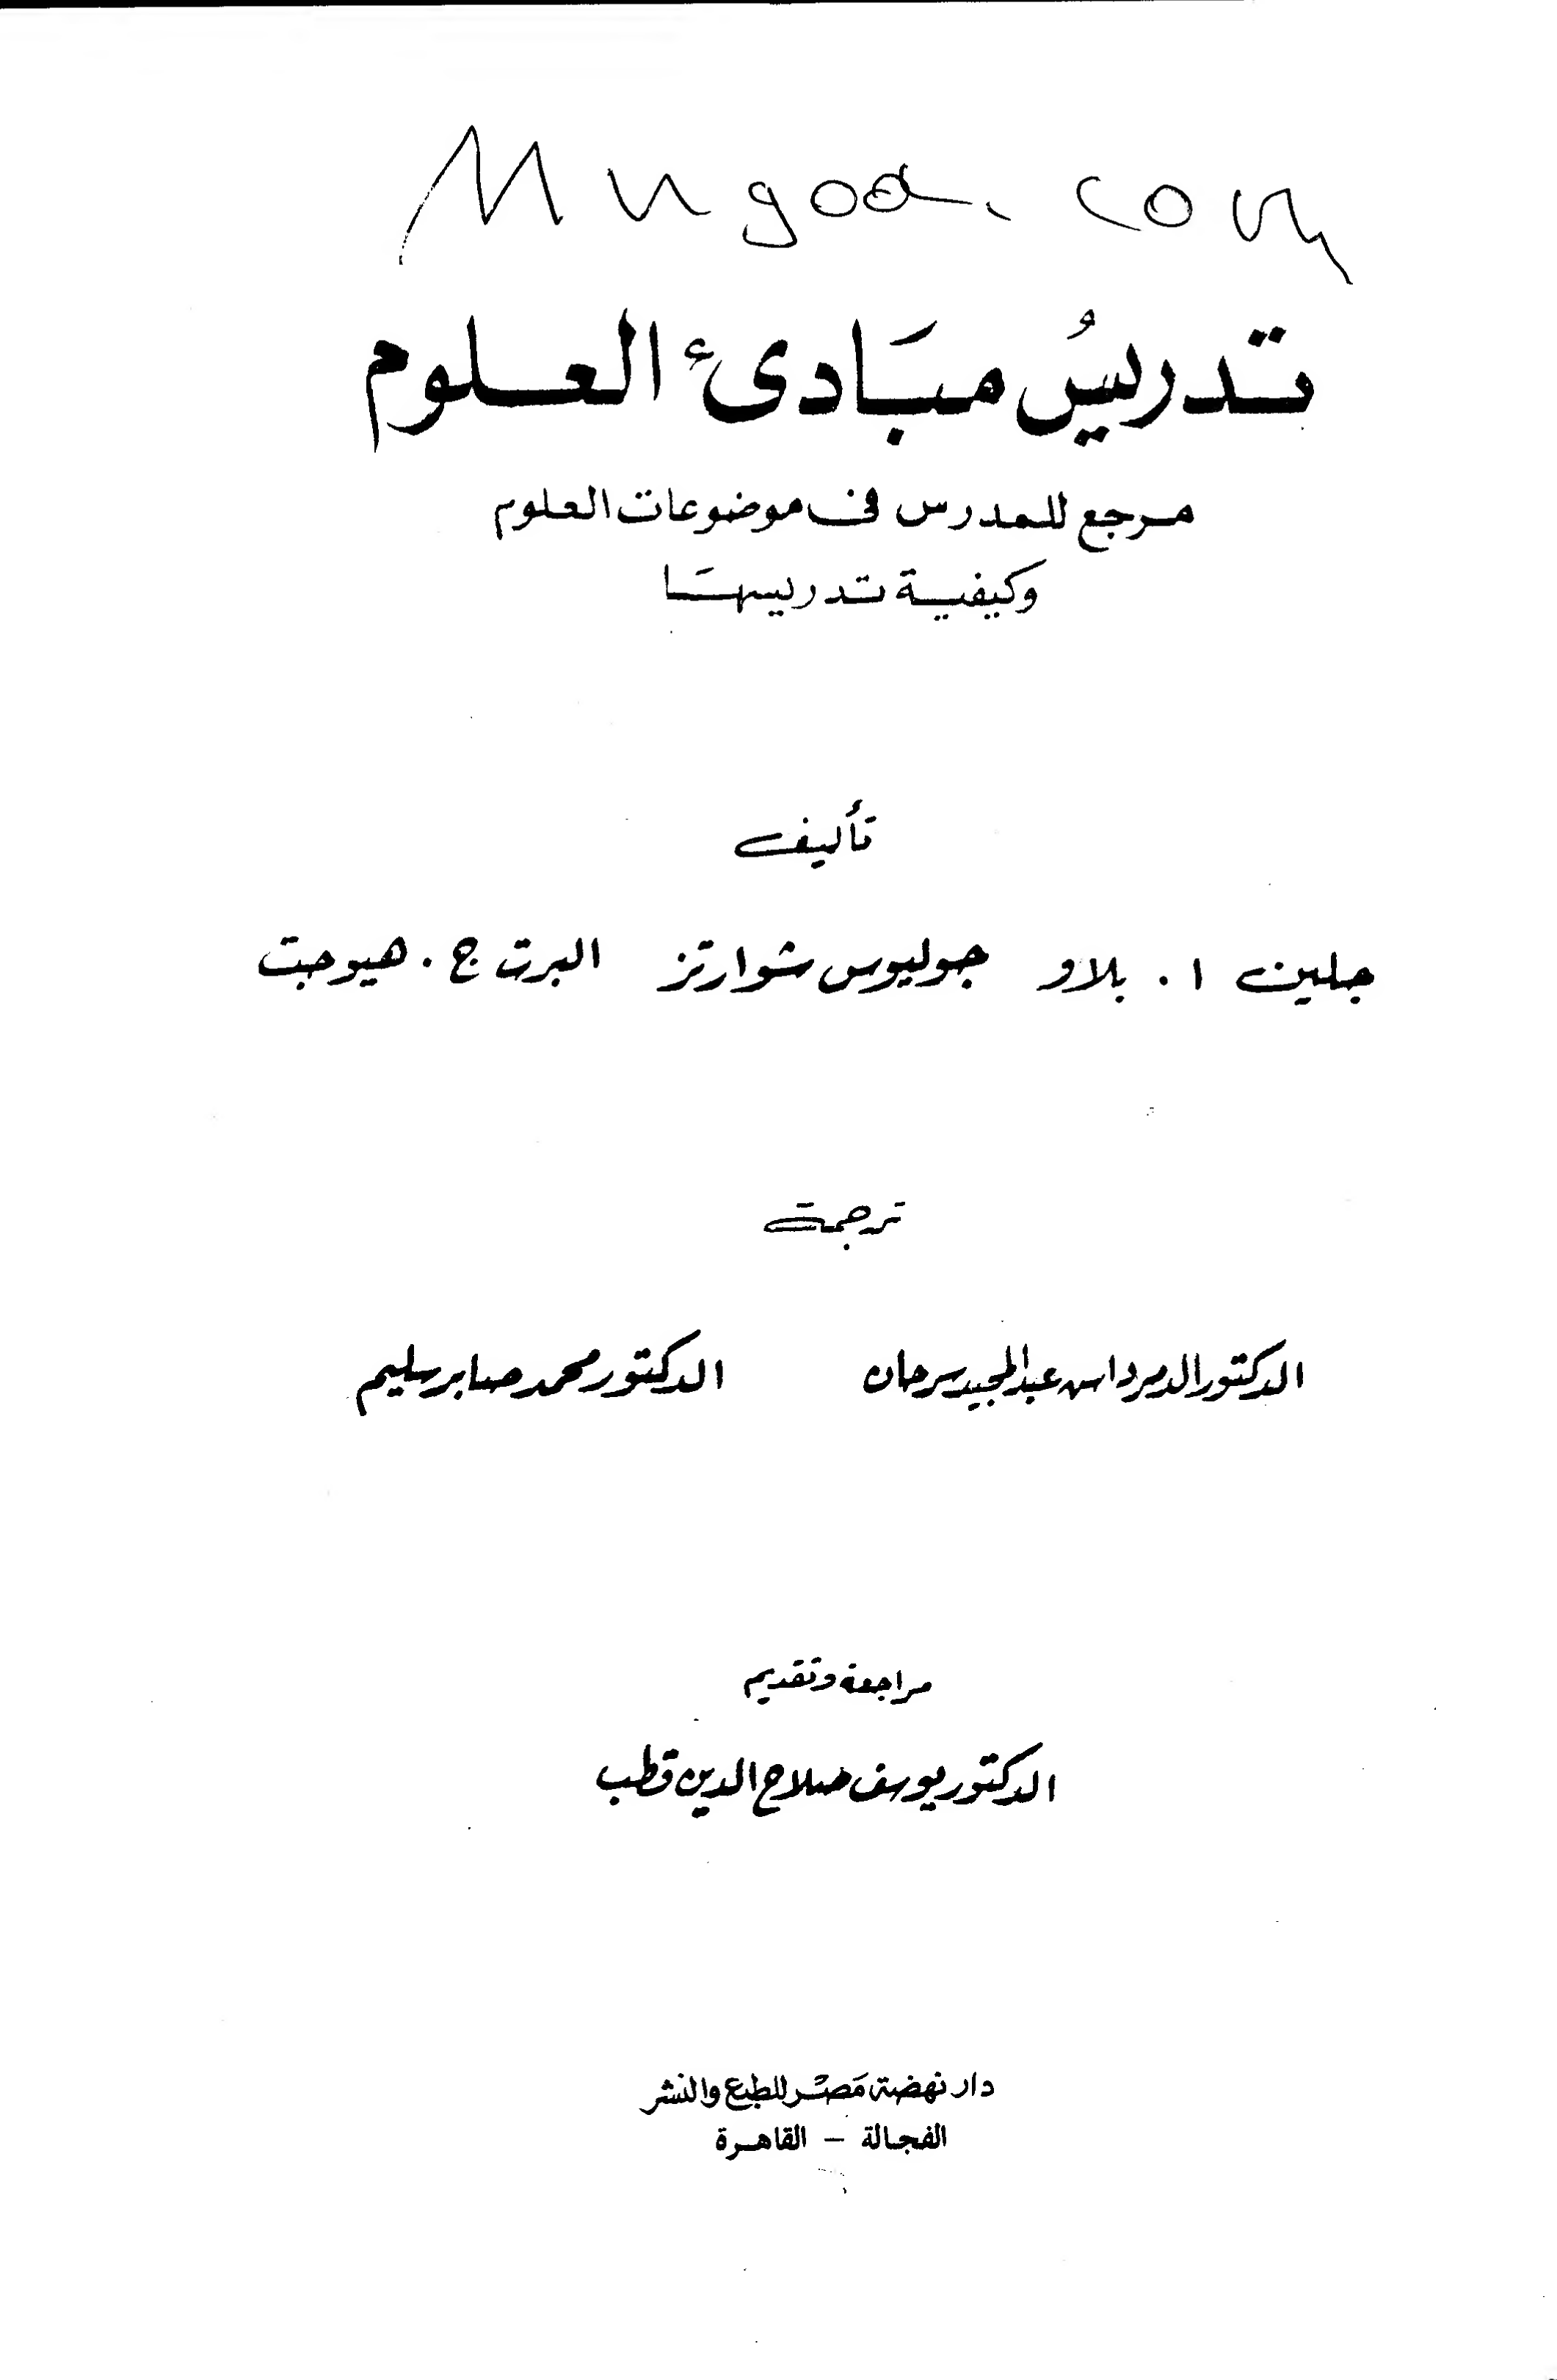 Mugod.com
تدريسُ مبَادئ العلوم
مرجع للمدرس في موضوعات العلوم
وكيفية تدريسهَا
تأليف
جلين ا. بلاو جوليوس شوارتز البرت ج. هيوجت
ترجمة
الدكتور الدمرداس عبد المجيد سرحان الدكتور محمد صابر سليم
مراجعة وتقديم
الدكتور يوسف صلاح الدين قطب
دار نهضة مَصْر للطبع والنشر
الفجالة – القاهرة